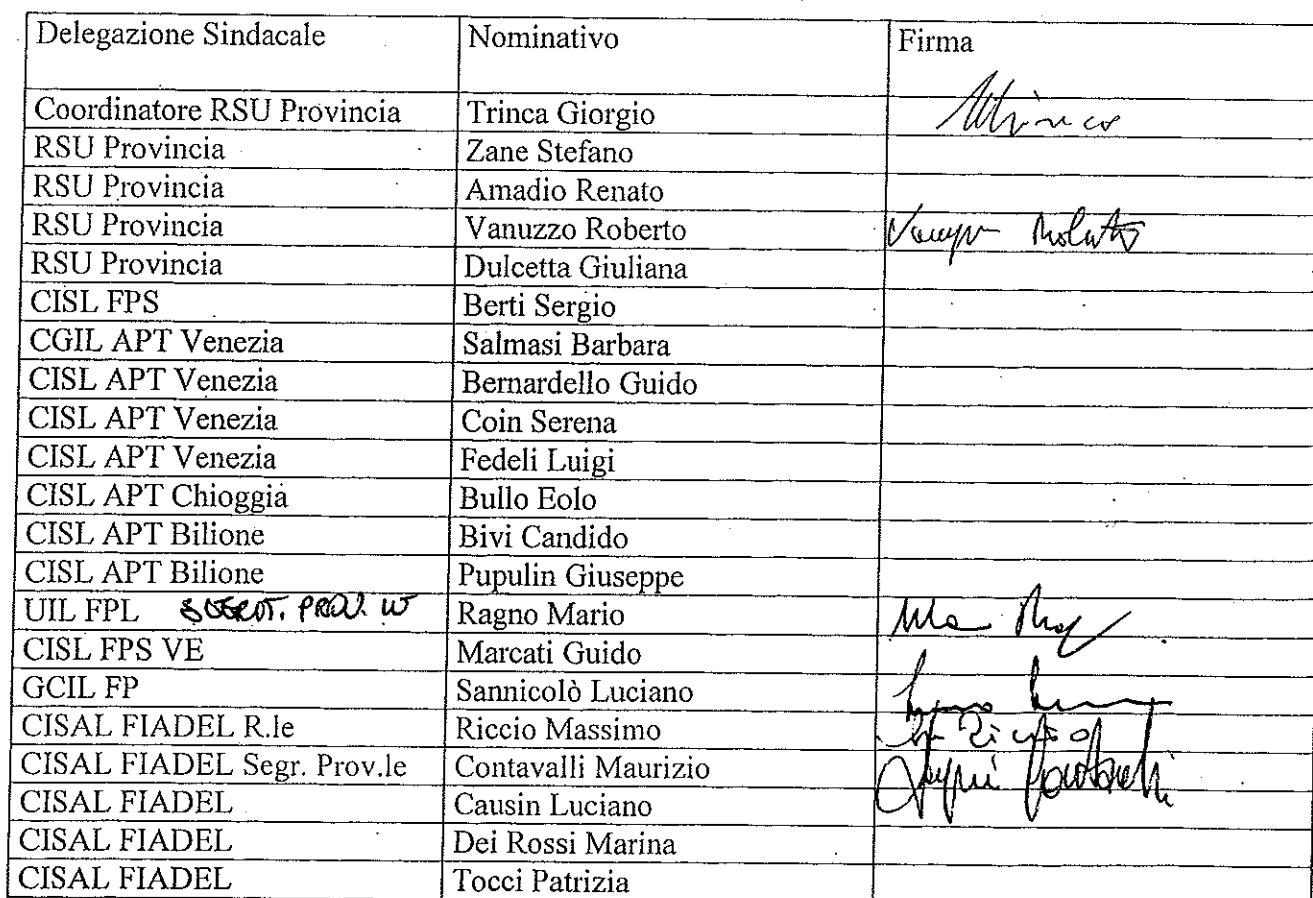 Delegazione Sindacale Nominativo Firma
Coordinatore RSU Provincia Trinca Giorgio
RSU Provincia Zane Stefano
RSU Provincia Amadio Renato
RSU Provincia Vanuzzo Roberto
RSU Provincia Dulcetta Giuliana
CISL FPS Berti Sergio
CGIL APT Venezia Salmasi Barbara
CISL APT Venezia Bernardello Guido
CISL APT Venezia Coin Serena
CISL APT Venezia Fedeli Luigi
CISL APT Chioggia Bullo Eolo
CISL APT Bilione Bivi Candido
CISL APT Bilione Pupulin Giuseppe
UIL FPL Ragno Mario
CISL FPS VE Marcati Guido
GCIL FP Sannicolò Luciano
CISAL FIADEL R.le Riccio Massimo
CISAL FIADEL Segr. Prov.le Contavalli Maurizio
CISAL FIADEL Causin Luciano
CISAL FIADEL Dei Rossi Marina
CISAL FIADEL Tocci Patrizia